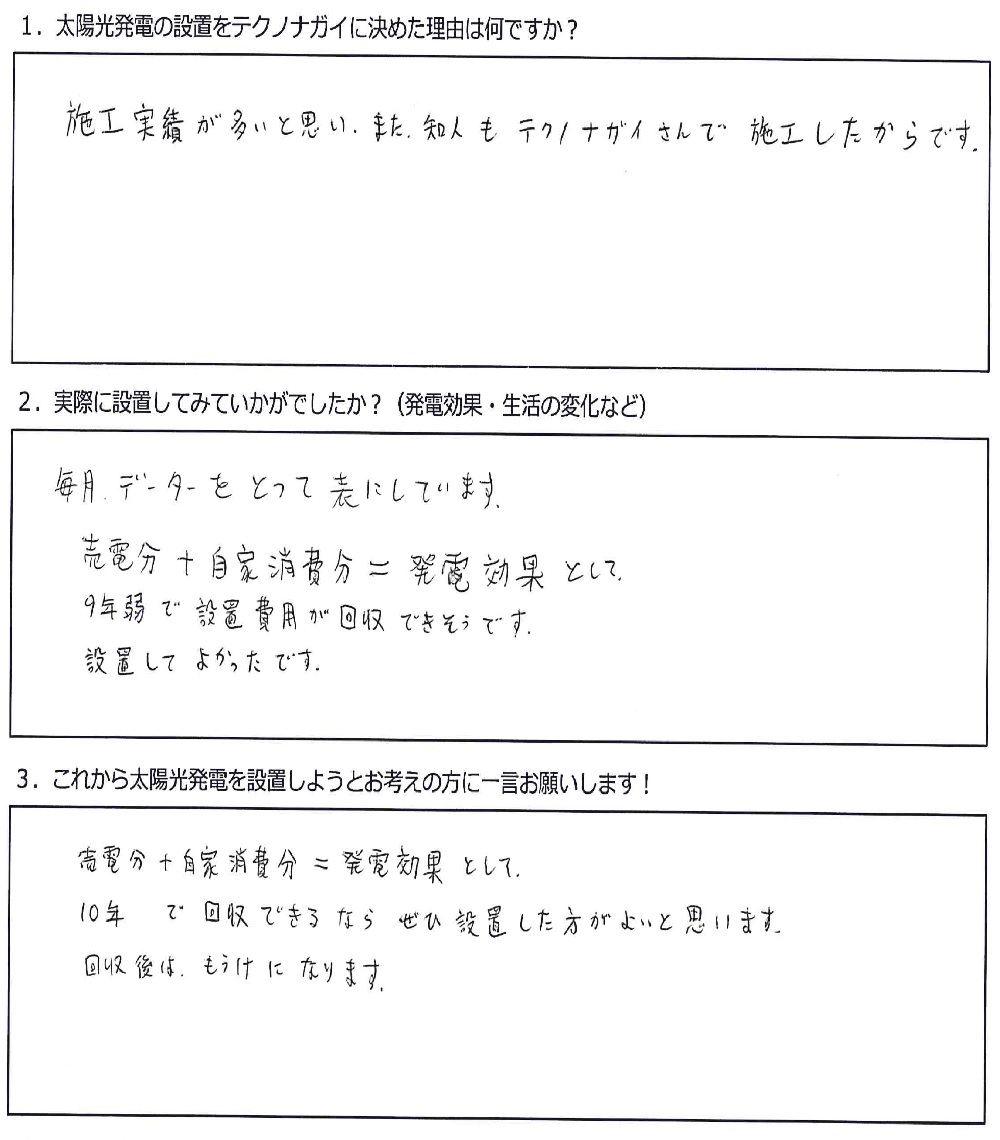 1．太陽光発電の設置をテクノナガイに決めた理由は何ですか？
施工実績が多いと思い、また、知人もテクノナガイさんで施工したからです。
2．実際に設置してみていかがでしたか？（発電効果・生活の変化など）
毎月、データーをとって表にしています。
売電分＋自家消費分＝発電効果として、
9年弱で設置費用が回収できそうです。
設置してよかったです。
3．これから太陽光発電を設置しようとお考えの方に一言お願いします！
売電分＋自家消費分＝発電効果として、
10年 で回収できるならぜひ設置した方がよいと思います。
回収後は、もうけになります。